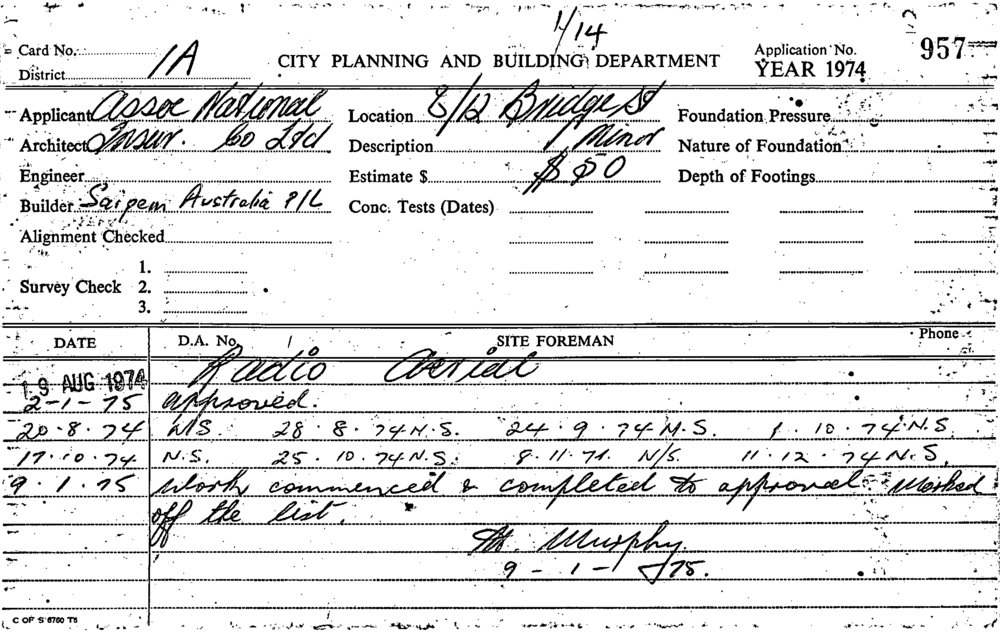 1/14
Card No. Application No. 957
District 1A CITY PLANNING AND BUILDING DEPARTMENT YEAR 1974
Applicant Assoc National Location 8/12 Bridge St Foundation Pressure
Architect Insur. Co Ltd Description Minor Nature of Foundation
Engineer Estimate $ $50 Depth of Footings
Builder Saipem Australia P/L Conc. Tests (Dates)
Alignment Checked
1.
Survey Check 2.
3.
DATE D.A. No. SITE FOREMAN Phone
19 AUG 1974 Radio Aerial
2-1-75 approved.
20.8.74 N/S. 28.8.74 N.S. 24.9.74 N.S. 1.10.74 N.S.
17.10.74 N.S. 25.10.74 N.S. 8.11.74 N/S 11.12.74 N.S.
9.1.75 Work commenced & completed to approval Marked
off the list.
Murphy
9-1-75.
C OF S 6760 T6